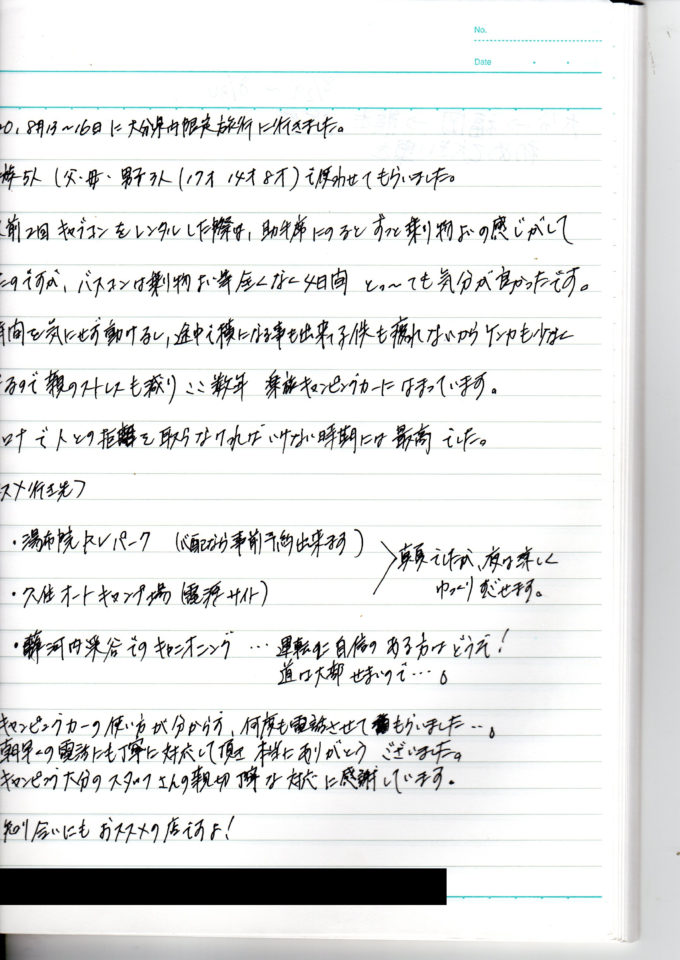 No.
Date
20, 8月13〜16日に大分県内限定旅行に行きました。
族5人（父・母・男子3人（17才 14才 8才）で使わせてもらいました。
前2回キャブコンをレンタルした際は、助手席にのるとずっと乗り物よいの感じがして
たのですが、バスコンは乗り物よい等全くなく4日間 とっ〜ても気分が良かったです。
時間を気にせず動けるし、途中で横になる事も出来て子供も疲れないからケンカも少なく
なるので親のストレスも減り ここ数年 家族キャンピングカーにはまっています。
ロナで人との距離を取らなければいけない時期には最高でした。
スメ行き先〉
・湯布院RVパーク （心配なら事前予約出来ます）
・久住オートキャンプ場（電源サイト）
真夏でしたが、夜は涼しく
ゆっくりすごせます。
・藤河内渓谷でのキャニオニング … 運転に自信のある方はどうぞ！
道は大部せまいので…。
キャンピングカーの使い方が分からず、何度も電話させてもらいました…。
朝早くの電話にも丁寧に対応して頂き 本当にありがとうございました。
キャンピング大分のスタッフさんの親切丁寧な対応に感謝しています。
知り合いにもおススメの店ですよ！